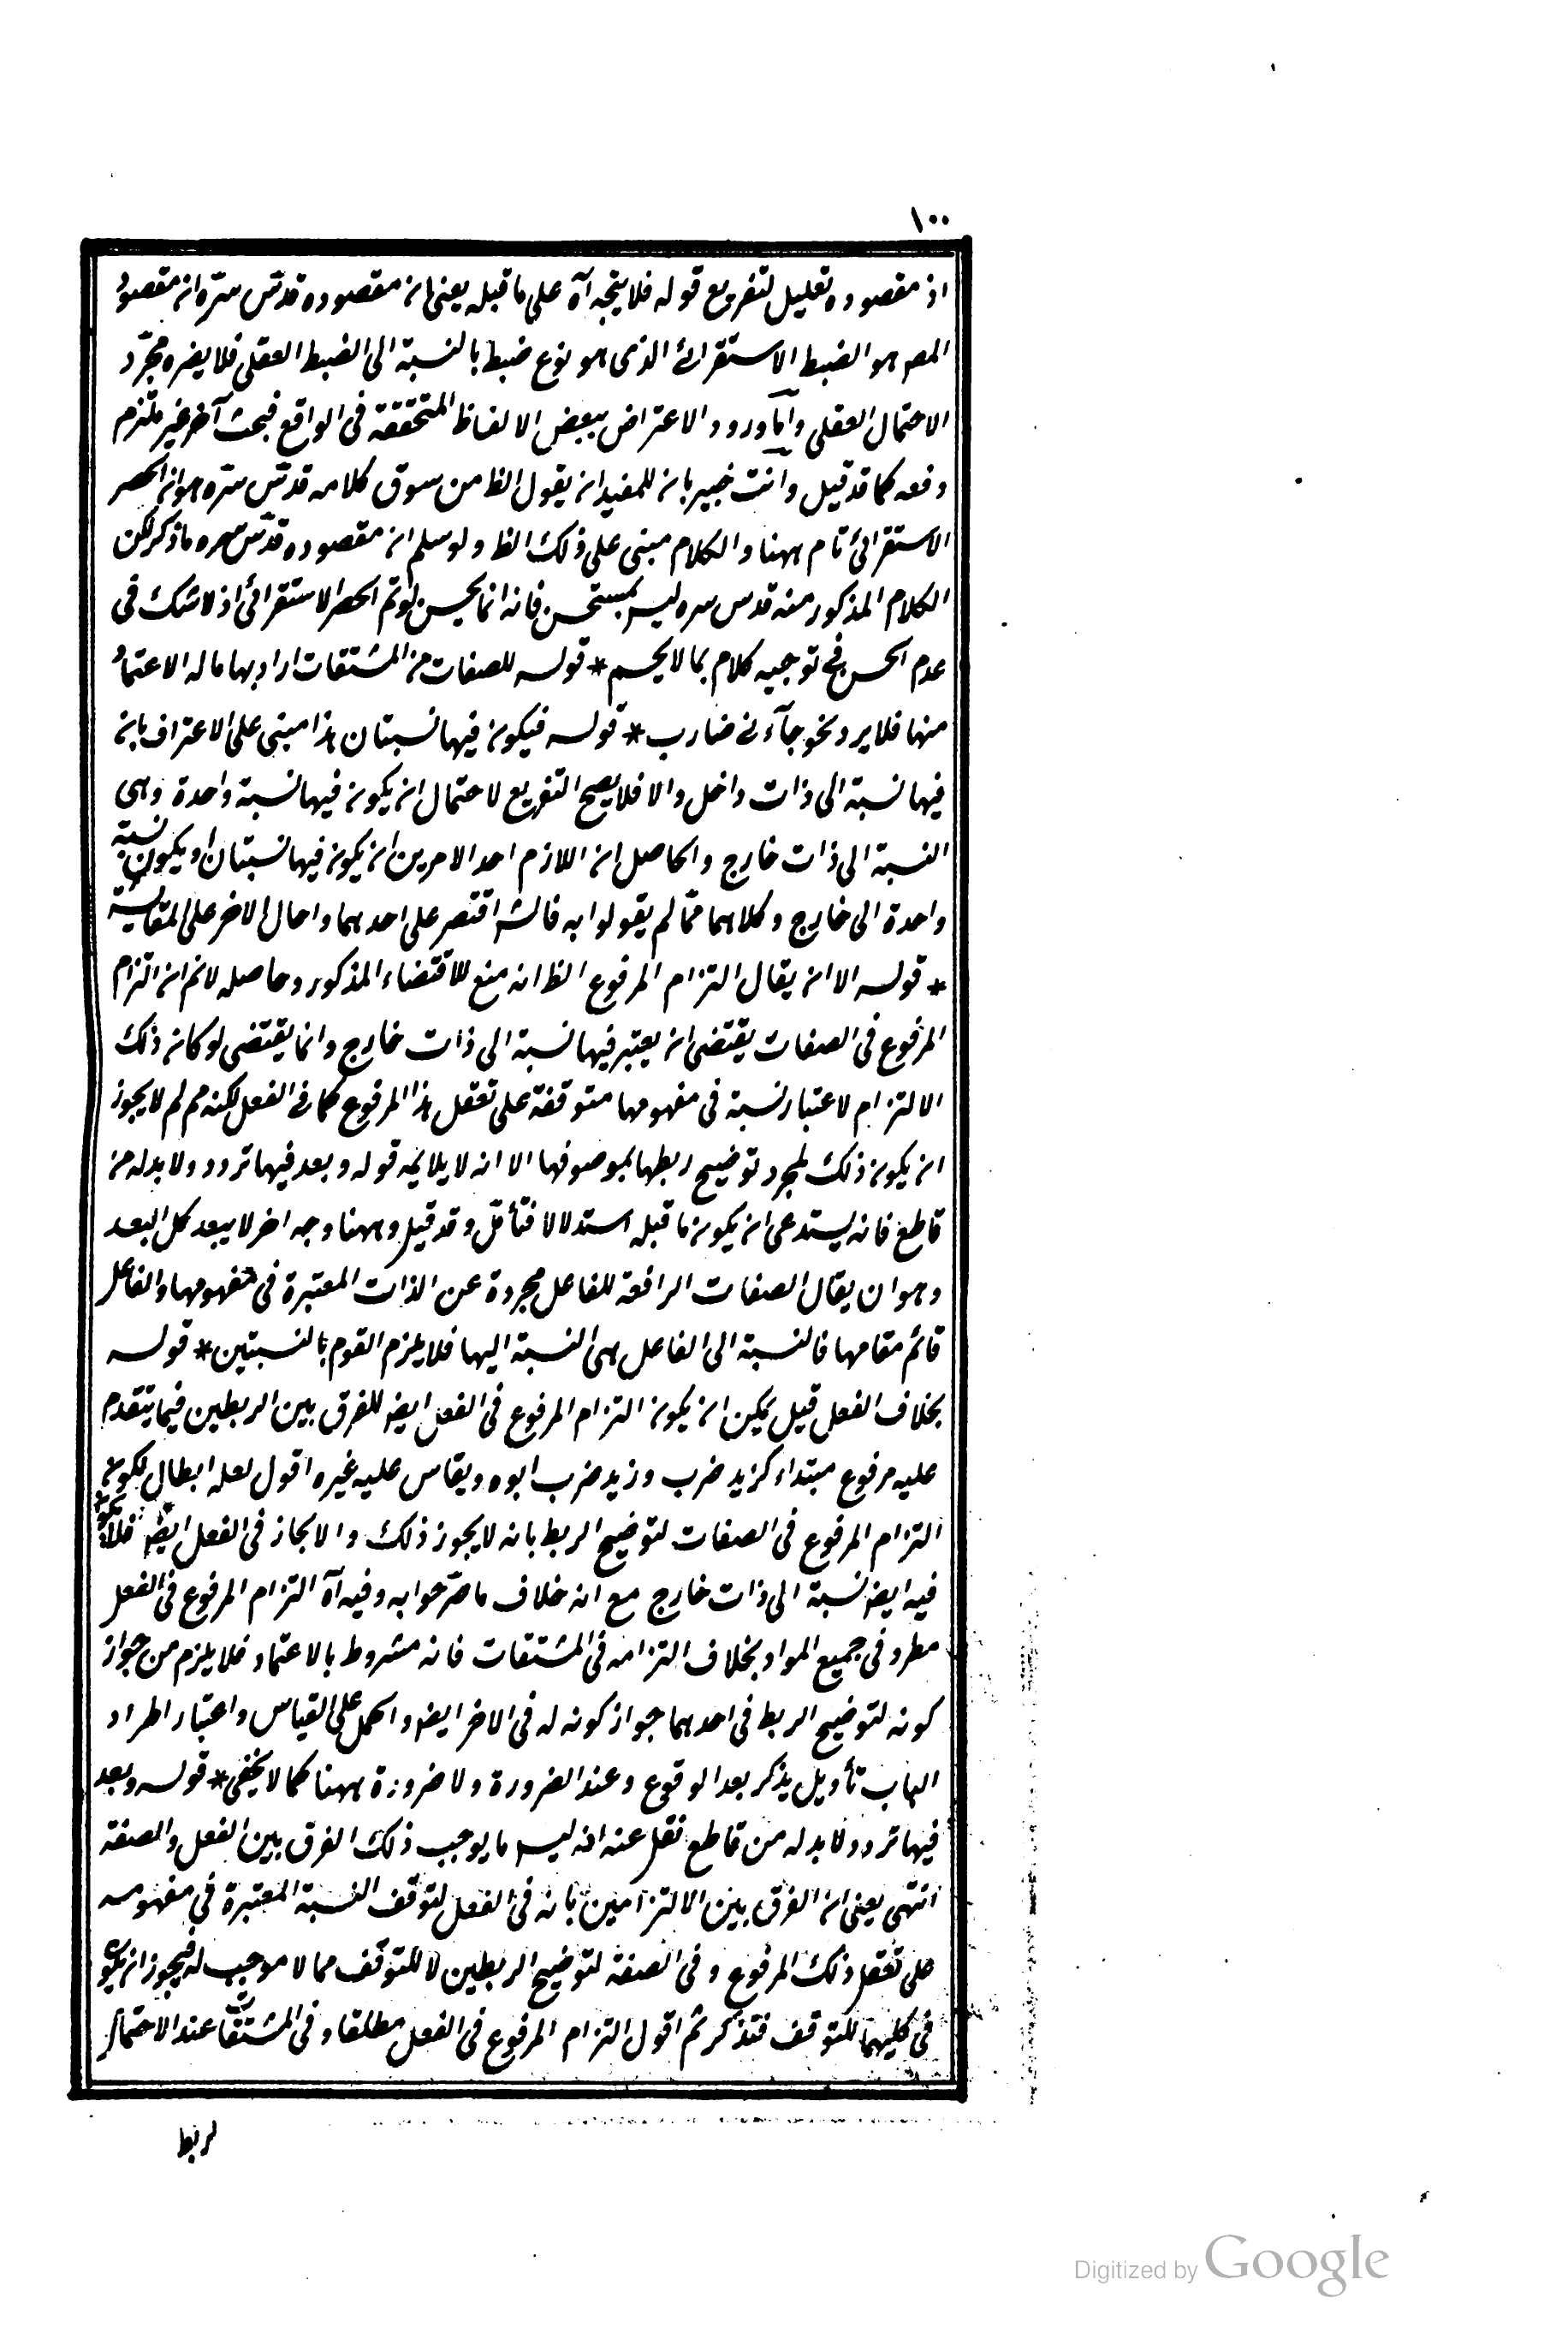 ١٠٠
اذ مقصوده تعليل لتفريع قوله فلا يتجه آه على ما قبله يعنى ان مقصوده قدّس سرّه ان مقصود
المص هو الضبط الاستقرائى الذى هو نوع ضبط بالنسبة الى الضبط العقلى فلا يضره مجرّد
الاحتمال العقلى وامّا ورود الاعتراض ببعض الالفاظ المتحققة فى الواقع فبحث آخر غير ملتزم
دفعه كما قد قيل وانت خبير بان للمفيد ان يقول الظ من سوق كلامه قدّس سرّه هو ان الحصر
الاستقرائى تام ههنا والكلام مبنى على ذلك الظ ولو سلم ان مقصوده قدّس سره ما ذكر لكن
الكلام المذكور منه قدس سره ليس بمستحسن فانه انما يحسن لو تم الحصر الاستقرائى اذ لا شك فى
عدم الحسن فى توجيه كلام بما لا يحسم * قوله للصفات من المشتقات اراد بها ما له الاعتماد
منها فلا يرد نحو جآءنى ضارب * قوله فيكون فيها نسبتان هذا مبنى على الاعتراف بان
فيها نسبة الى ذات داخل والا فلا يصح التفريع لاحتمال ان يكون فيها نسبة واحدة وهى
النسبة الى ذات خارج والحاصل ان اللازم احد الامرين ان يكون فيها نسبتان او يكون نسبة
واحدة الى خارج وكلاهما ممّا لم يقولوا به فالش اقتصر على احدهما واحال الاخر على المقايسة
* قوله الا ان يقال التزام المرفوع الظ انه منع للاقتضاء المذكور وحاصله لانم ان التزام
المرفوع فى الصفات يقتضى ان يعتبر فيها نسبة الى ذات خارج وانما يقتضى لو كان ذلك
الالتزام لاعتبار نسبة فى مفهومها متوقفة على تعقل هذا المرفوع كما فى الفعل لكنه مم لم لا يجوز
ان يكون ذلك لمجرد توضيح ربطها بموصوفها الا انه لا يلايمه قوله وبعد فيها تردد ولا بد له من
قاطع فانه يستدعى ان يكون ما قبله استدلالا فتأمّل وقد قيل وههنا وجه اخر لا يبعد كل البعد
وهو ان يقال الصفات الرافعة للفاعل مجردة عن الذات المعتبرة فى مفهومها والفاعل
قائم مقامها فالنسبة الى الفاعل هى النسبة اليها فلا يلزم القوم بالنسبتين * قوله
بخلاف الفعل قيل يمكن ان يكون التزام المرفوع فى الفعل ايضا للفرق بين الربطين فيما يتقدم
عليه مرفوع مبتداء كزيد ضرب وزيد ضرب ابوه ويقاس عليه غيره اقول لعله ابطال لكون
التزام المرفوع فى الصفات لتوضيح الربط بانه لا يجوز ذلك والا لجاز فى الفعل ايضا فلا يكون
فيه ايضا نسبة الى ذات خارج مع انه خلاف ما صرّحوا به وفيه آه التزام المرفوع فى الفعل
مطرد فى جميع المواد بخلاف التزامه فى المشتقات فانه مشروط بالاعتماد فلا يلزم من جواز
كونه لتوضيح الربط فى احدهما جواز كونه له فى الاخر ايضا والحمل على القياس واعتبار اطراد
الباب تأويل يذكر بعد الوقوع وعند الضرورة ولا ضرورة ههنا كما لا يخفى * قوله وبعد
فيها تردد ولا بد له من قاطع نقل عنه انه ليس ما يوجب ذلك الفرق بين الفعل والصفة
انتهى يعنى ان الفرق بين الالتزامين بانه فى الفعل لتوقف النسبة المعتبرة فى مفهومه
على تعقل ذلك المرفوع وفى الصفة لتوضيح الربطين لا للتوقف مما لا موجب له فيجوز ان يكون
فى كليهما للتوقف فتذكر ثم اقول التزام المرفوع فى الفعل مطلقا وفى المشتقات عند الاحتمال
لربط
Digitized by Google